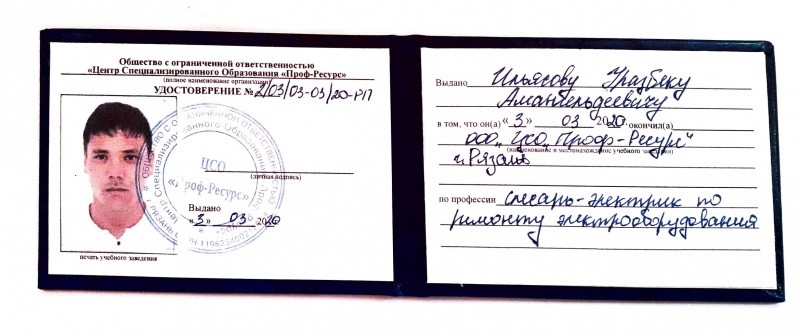 Общество с ограниченной ответственностью
«Центр Специализированного Образования «Проф-Ресурс»
(полное наименование организации)
УДОСТОВЕРЕНИЕ № 2/03/03-03/20-РП
ЦСО
«Проф-Ресурс»
(личная подпись)
Выдано
«3» 03 2020
печать учебного заведения
Выдано Ильясову Уразбеку
Амангельдеевичу
в том, что он(а) «3» 03 2020 окончил(а)
ООО „ЦСО „Проф-Ресурс"
(наименование и местонахождение учебного заведения)
г. Рязань
по профессии слесарь-электрик по
ремонту электрооборудования